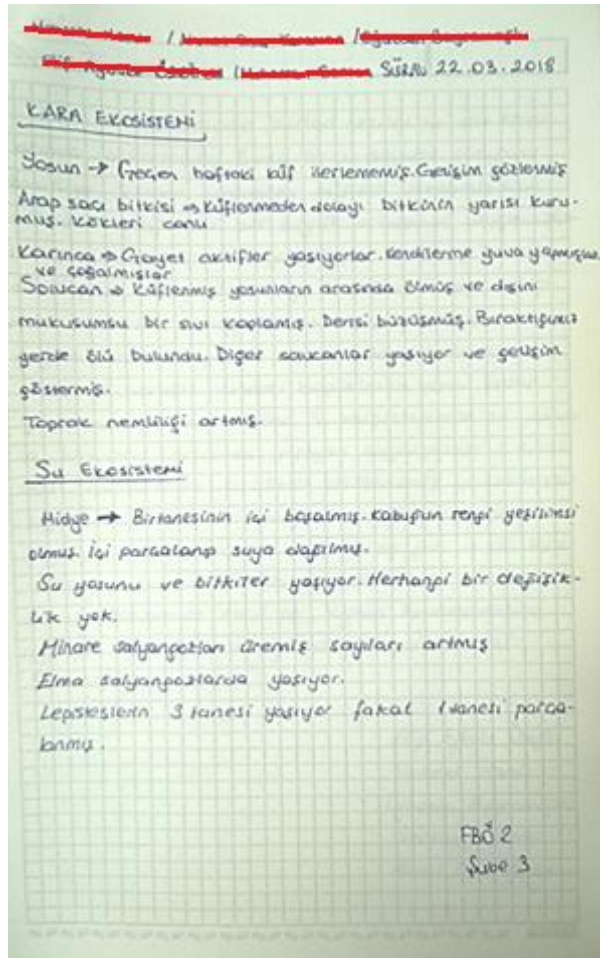 22.03.2018
KARA EKOSİSTEMİ
Yosun → Geçen haftaki küf ilerlememiş. Gelişim gözlenmiş
Arap saçı bitkisi → Küflenmeden dolayı bitkinin yarısı kuru-
muş. Kökleri canlı
Karınca → Gayet aktifler yaşıyorlar. Kendilerine yuva yapmışlar
ve çoğalmışlar
Solucan → Küflenmiş yosunların arasında ölmüş ve dışını
mukusumsu bir sıvı kaplamış. Derisi büzüşmüş. Bıraktığımız
yerde ölü bulundu. Diğer solucanlar yaşıyor ve gelişim
göstermiş.
Toprak nemliliği artmış.
Su Ekosistemi
Midye → Birtanesinin içi boşalmış. Kabuğun rengi yeşilimsi
olmuş. İçi parçalanıp suya dağılmış.
Su yosunu ve bitkiler yaşıyor. Herhangi bir değişik-
lik yok.
Minare salyangozları üremiş sayıları artmış
Elma salyangozlarda yaşıyor.
Lepisteslerin 3 tanesi yaşıyor fakat 1 tanesi parça-
lanmış.
FBÖ 2
Şube 3